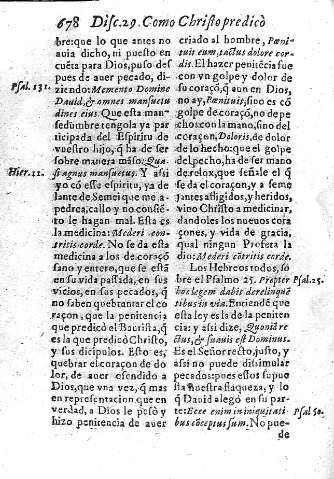 678 Disc.29. Como Christo predicò
bre: que lo que antes no
auia dicho, ni puesto en
cuẽta para Dios, puso des
pues de auer pecado, di-
Psal. 131.
ziendo: Memento Domine
Dauid, & omnes mansuetu
dines eius Que esta man-
sedumbre tengola ya par
ticipada del Espiritu de
vuestro hijo, q̃ ha de ser
sobre manera mãso: Qua-
Hier. 11.
si agnus mansuetus. Y assi
yo cõ esse espiritu, ya de
lante de Semei que me a-
pedrea, callo y no consiẽ-
to le hagan mal. Esta es
la medicina: Mederi con-
tritis corde. No se da esta
medicina a los de coraçõ
sano y entero, que se està
en su vida passada, en sus
vicios, en sus pecados, q̃
no saben quebrantar el co
raçon, que la penitencia
que predicò el Bautista, q̃
es la que predicò Christo,
y sus dicipulos. Esto es,
quebrar el coraçon de do
lor, de auer ofendido a
Dios, que vna vez, q̃ mas
en representacion que en
verdad, a Dios le pesò y
hizo penitencia de auer
criado al hombre, Pœni-
tuit eum, tactus dolore cor-
dis. El hazer penitẽcia fue
con vn golpe y dolor de
su coraçõ, q̃ aun en Dios,
no ay, Pœnituit, sino es cõ
golpe de coraçõ, no de pe
cho: con la mano, sino del
coraçon, Doloris, de dolor
de lo hecho: que el golpe
del pecho, ha de ser mano
de relox, que señale el q̃
se da el coraçon, y a seme
jantes afligidos, y heridos,
vino Christo a medicinar,
dandoles los nueuos cora
çones, y vida de gracia,
qual ningun Profeta la
dio: Mederi cõtritis corde.
Los Hebreos todos, so
bre el Psalmo 25. Propter
Psal. 25.
hoc legem dabis derelinquẽ
tibus in via. Entiendẽ que
esta ley es la de la peniten
cia: y assi dize, Quam id re
ctus, & suauis est Dominus.
Es el Señor recto, justo, y
assi no puede dissimular
pecados: pues estos supue
sta nuestra flaqueza, y lo
q̃ Dauid alegò en su par-
te: Ecce enim in iniquitati
Psal. 50.
bus cõceptus sum. No pue-
de